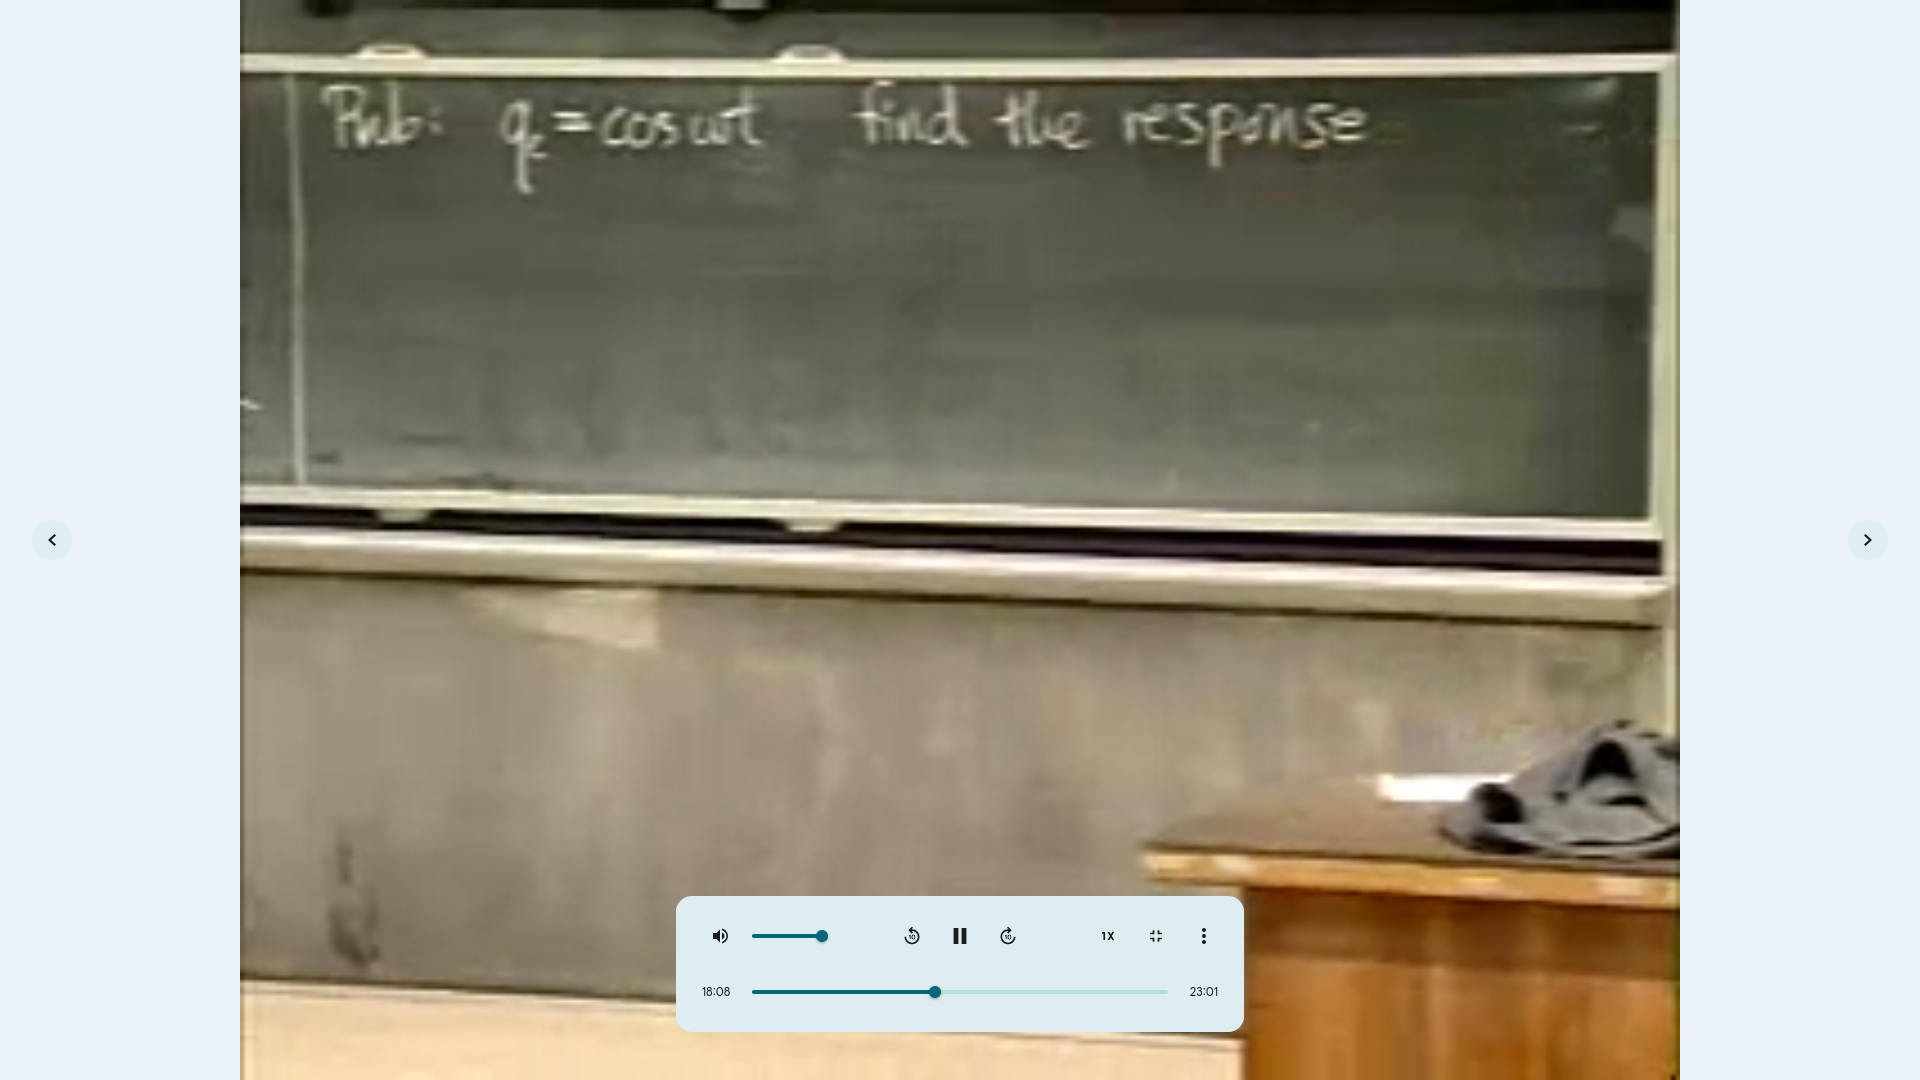 Prob: qₑ = cos ωt find the response
1X
18:08 23:01